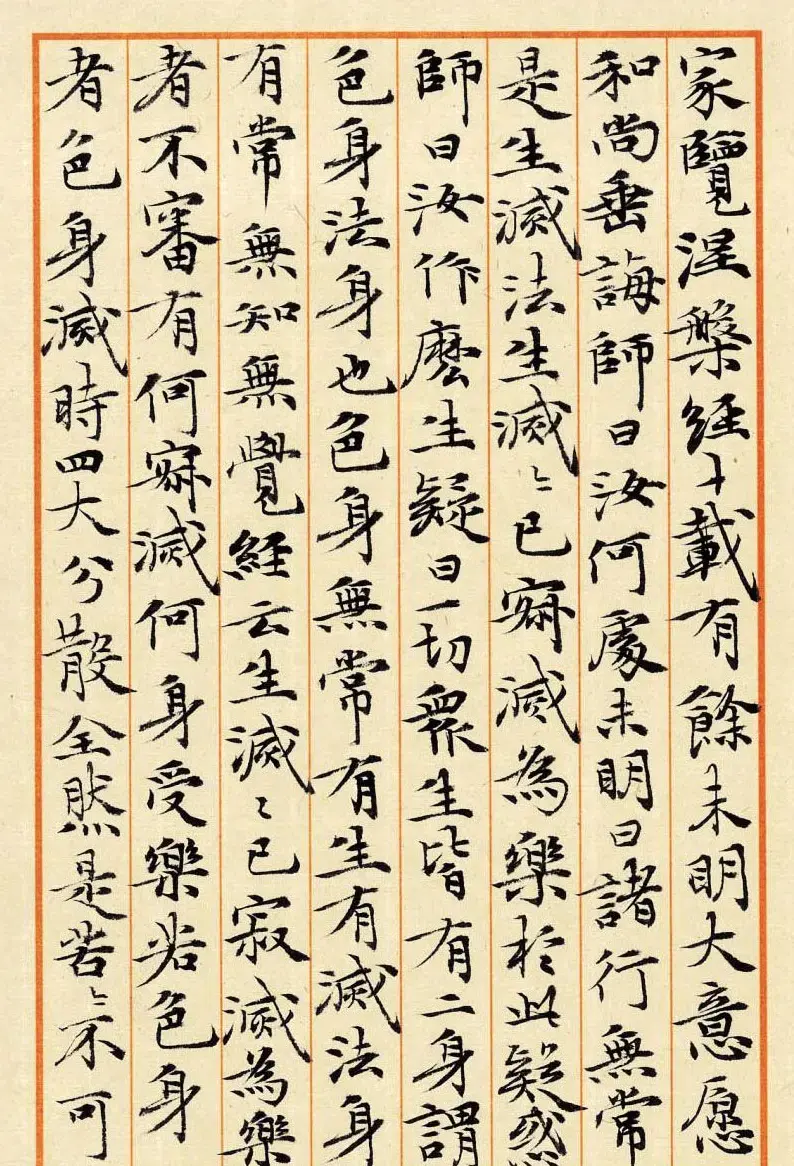 家覽涅槃經十載有餘未明大意愿
和尚垂誨師曰汝何處未明曰諸行無常
是生滅法生滅〻已寂滅為樂於此疑惑
師曰汝作麼生疑曰一切眾生皆有二身謂
色身法身也色身無常有生有滅法身
有常無知無覺經云生滅〻已寂滅為樂
者不審有何寂滅何身受樂若色身
者色身滅時四大分散全然是苦〻不可